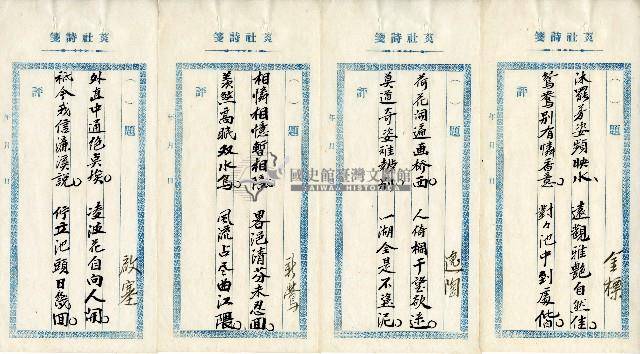 菼社詩箋
題
沐罷芳姿頻映水 遠觀雅艷自然佳
鴛鴦別有憐香意 對々池中到處偕
金標
評
年月日
菼社詩箋
題
荷花開遍画橋西 人倚欄干望欲迷
莫道奇姿難辨別 一湖全是不染泥
逸陶
評
年月日
菼社詩箋
題
相憐相憶暫相 畧浥清芬未忍回
羨然高眠双水鳥 風流占尽曲江隈
評
年月日
菼社詩箋
題
外直中通絕 埃 凌波花自向人開
祗令我信濂溪說 佇立池頭日幾回
啟塞
評
年月日
國史館臺灣文獻館
TAIWAN HISTORICA